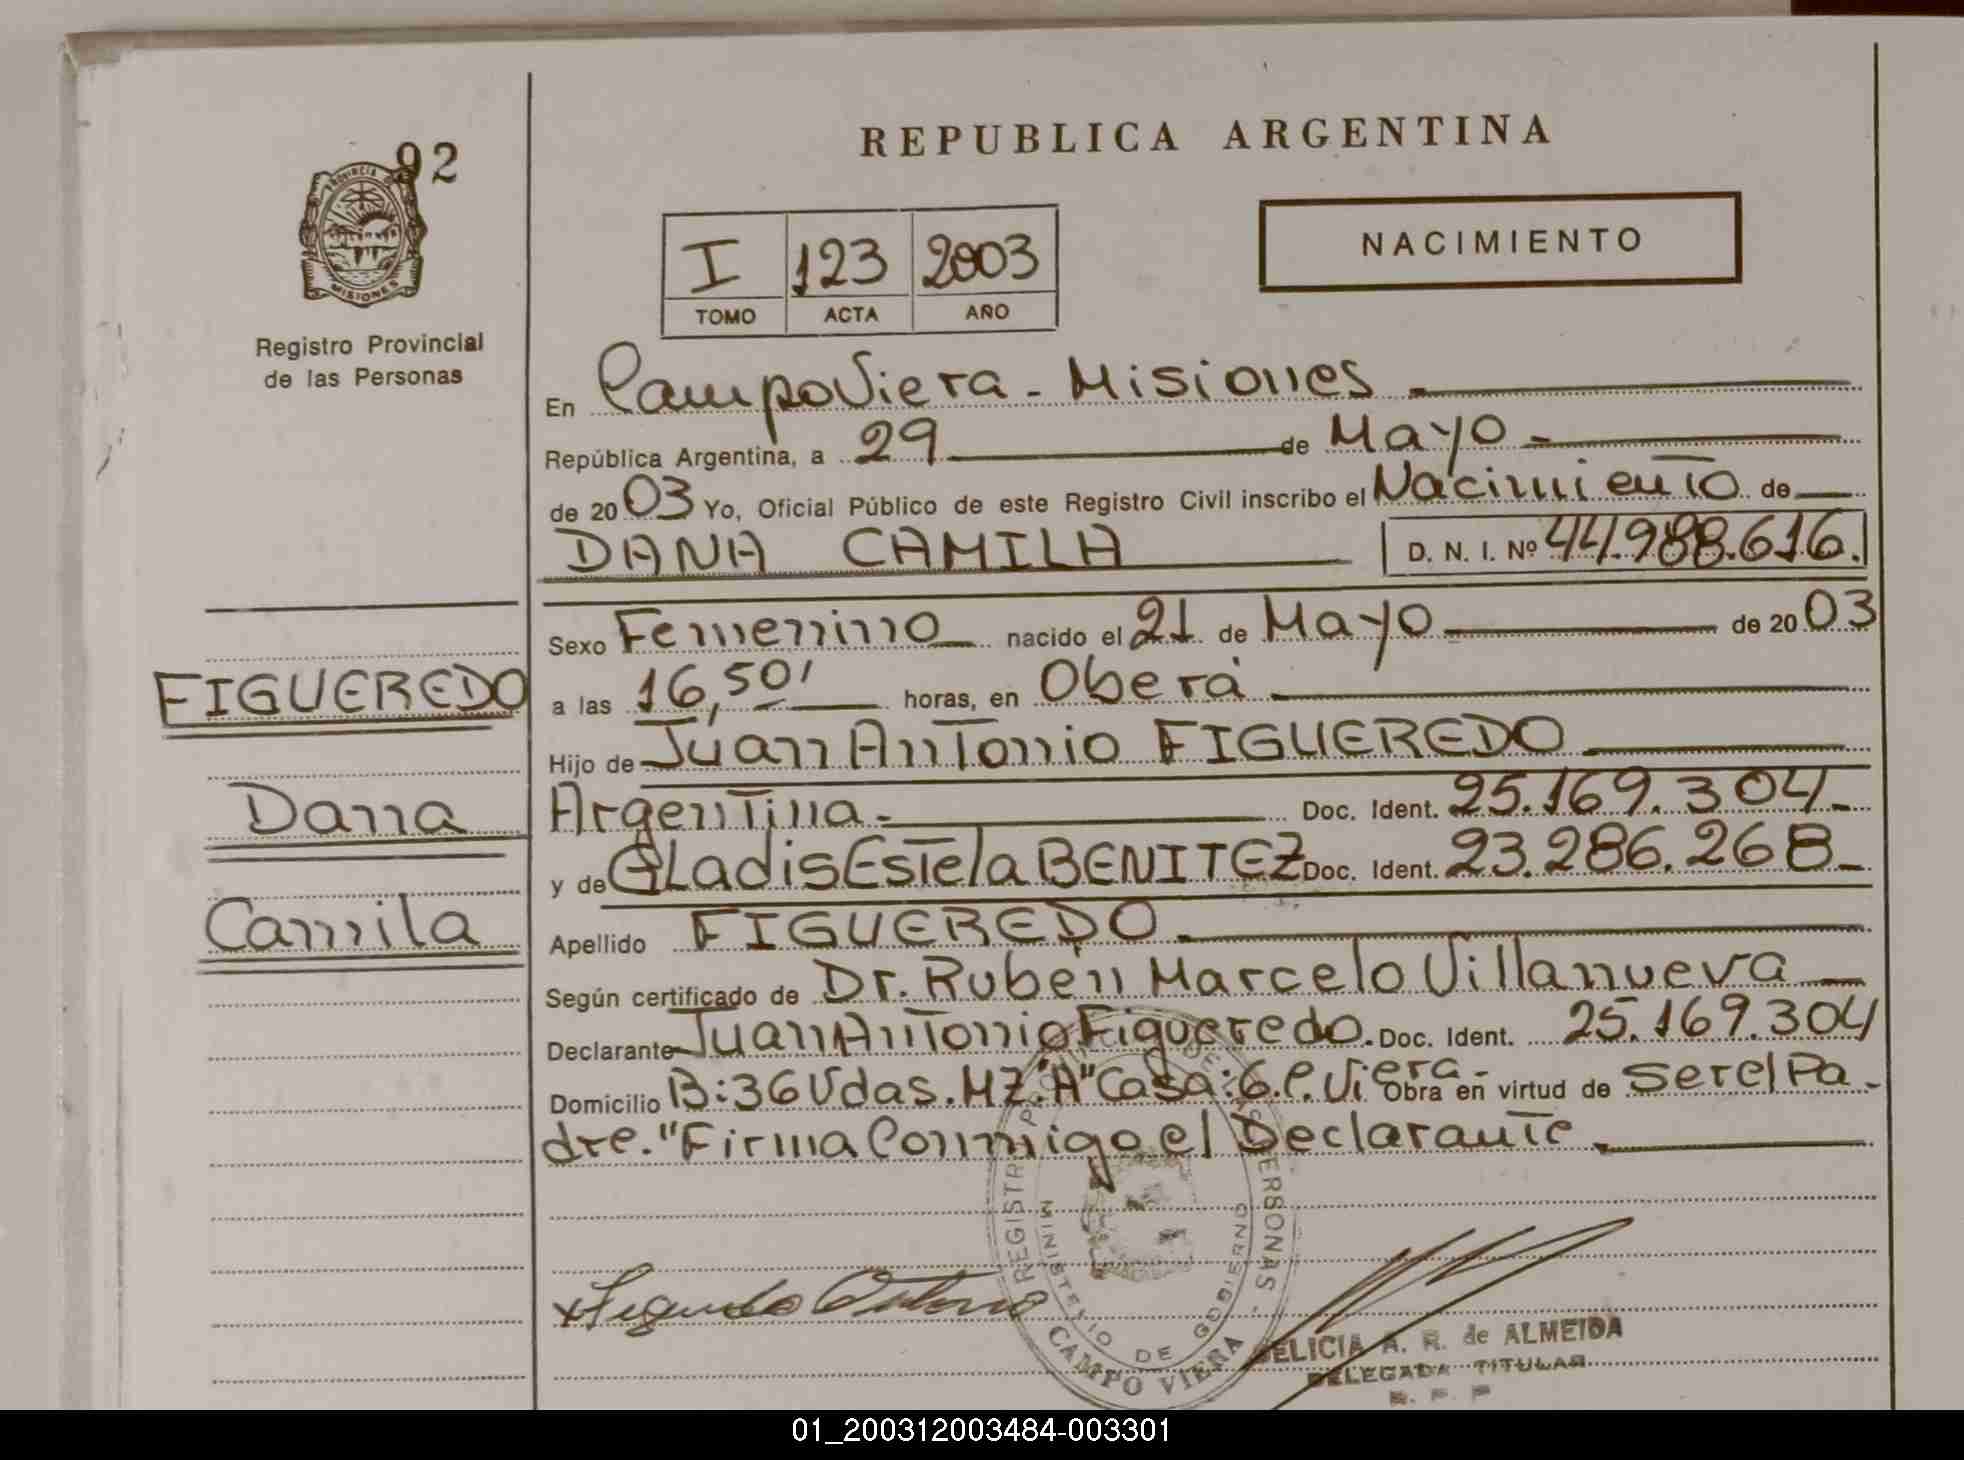 92
PROVINCIA DE
MISIONES
Registro Provincial
de las Personas
FIGUEREDO
Dana
Camila
REPUBLICA ARGENTINA
I 123 2003
TOMO ACTA AÑO
NACIMIENTO
En Campo Viera - Misiones -
República Argentina, a 29 de Mayo -
de 2003 Yo, Oficial Público de este Registro Civil inscribo el Nacimiento de
DANA CAMILA D. N. I. Nº 44.988.616.
Sexo Femenino nacido el 21 de Mayo de 2003
a las 16,50' horas, en Oberá
Hijo de Juan Antonio FIGUEREDO
Argentina - Doc. Ident. 25.169.304-
y de GLadis Estela BENITEZ Doc. Ident. 23.286.268-
Apellido FIGUEREDO
Según certificado de Dr. Rubén Marcelo Villanueva
Declarante Juan Antonio Figueredo. Doc. Ident. 25.169.304
Domicilio B: 36 Vdas. MZ. "A" Casa: 6. C. Viera - Obra en virtud de ser el Pa-
dre. "Firma Conmigo el Declarante
REGISTRO PERSONAS
MINISTERIO DE GOBIERNO
CAMPO VIERA
FELICIA A. R. de ALMEIDA
DELEGADA TITULAR
01_200312003484-003301